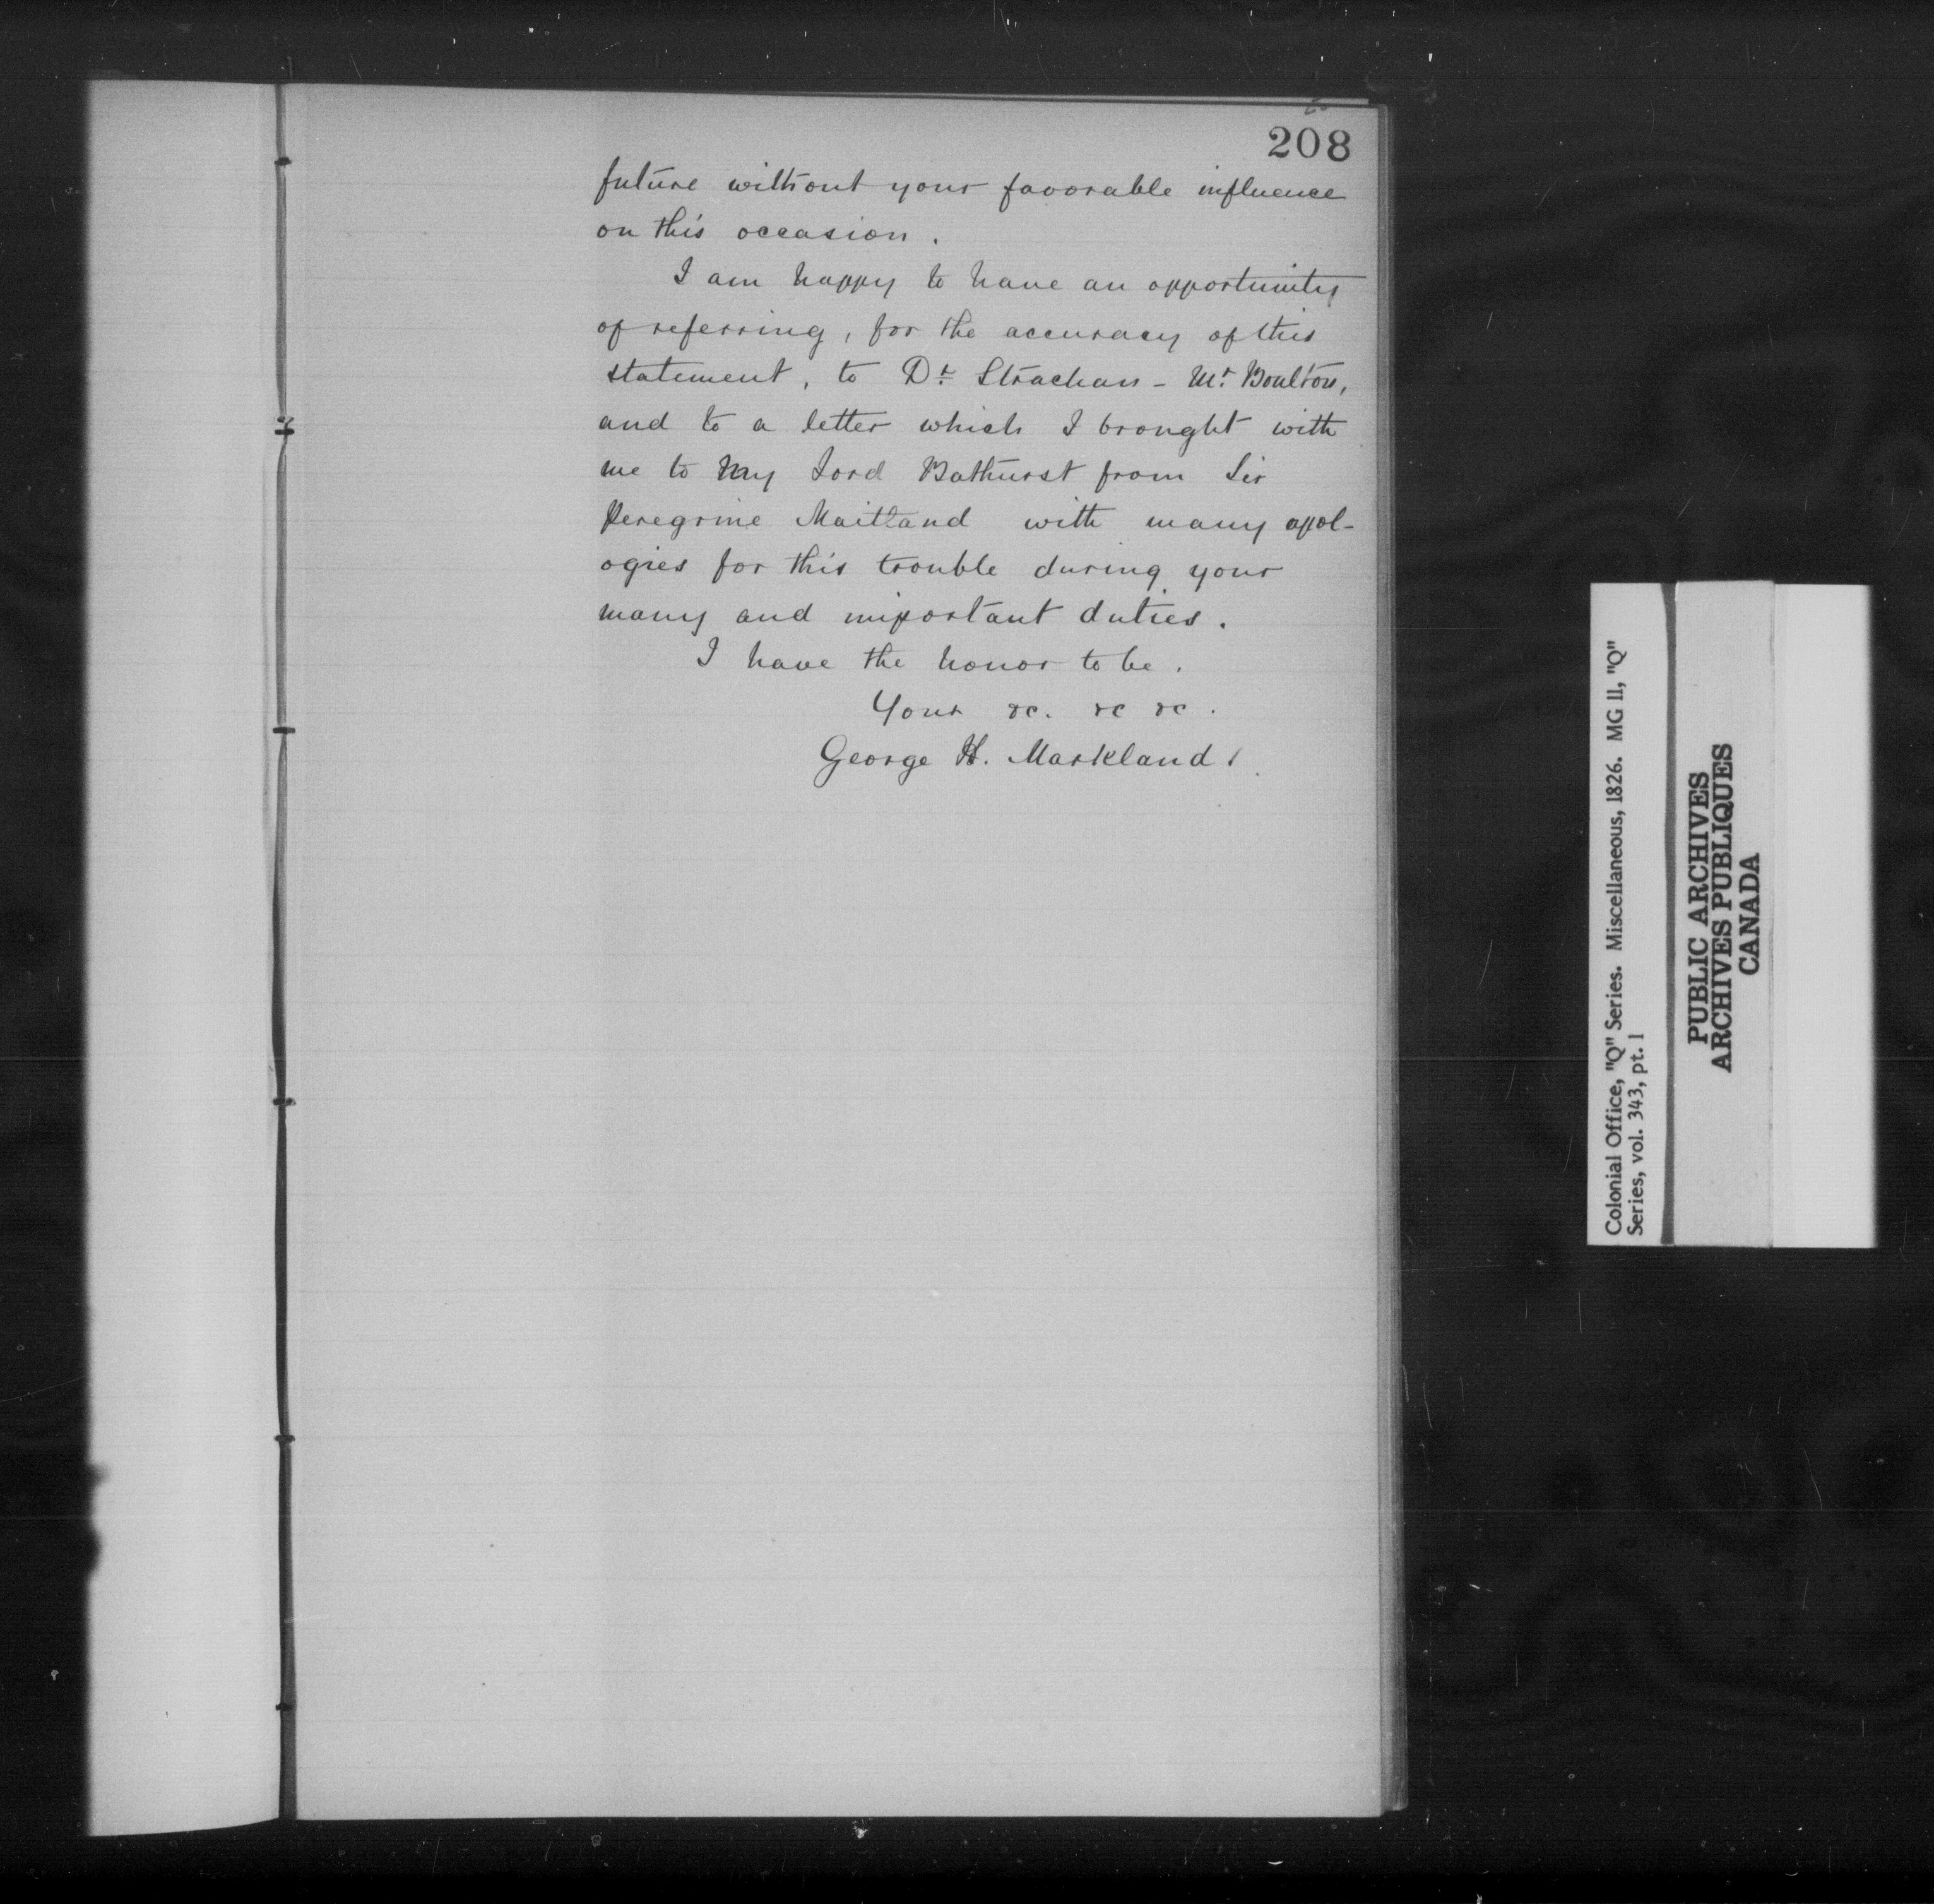 208
future without your favorable influence
on this occasion.
I am happy to have an opportunity
of referring, for the accuracy of this
statement, to Dr. Strachan - Mr. Boulton,
and to a letter which I brought with
me to My Lord Bathurst from Sir
Peregrine Maitland with many apol-
ogies for this trouble during your
many and important duties.
I have the honor to be.
Your &c. &c &c.
George H. Markland
Colonial Office, "Q" Series. Miscellaneous, 1826. MG 11, "Q"
Series, vol. 343, pt. 1
PUBLIC ARCHIVES
ARCHIVES PUBLIQUES
CANADA